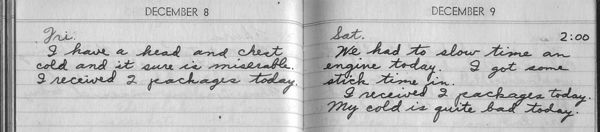 DECEMBER 8
Fri.
I have a head and chest
cold and it sure is miserable.
I received 2 packages today.
DECEMBER 9
Sat. 2:00
We had to slow time an
engine today. I got some
stick time in.
I received 2 packages today.
My cold is quite bad today.